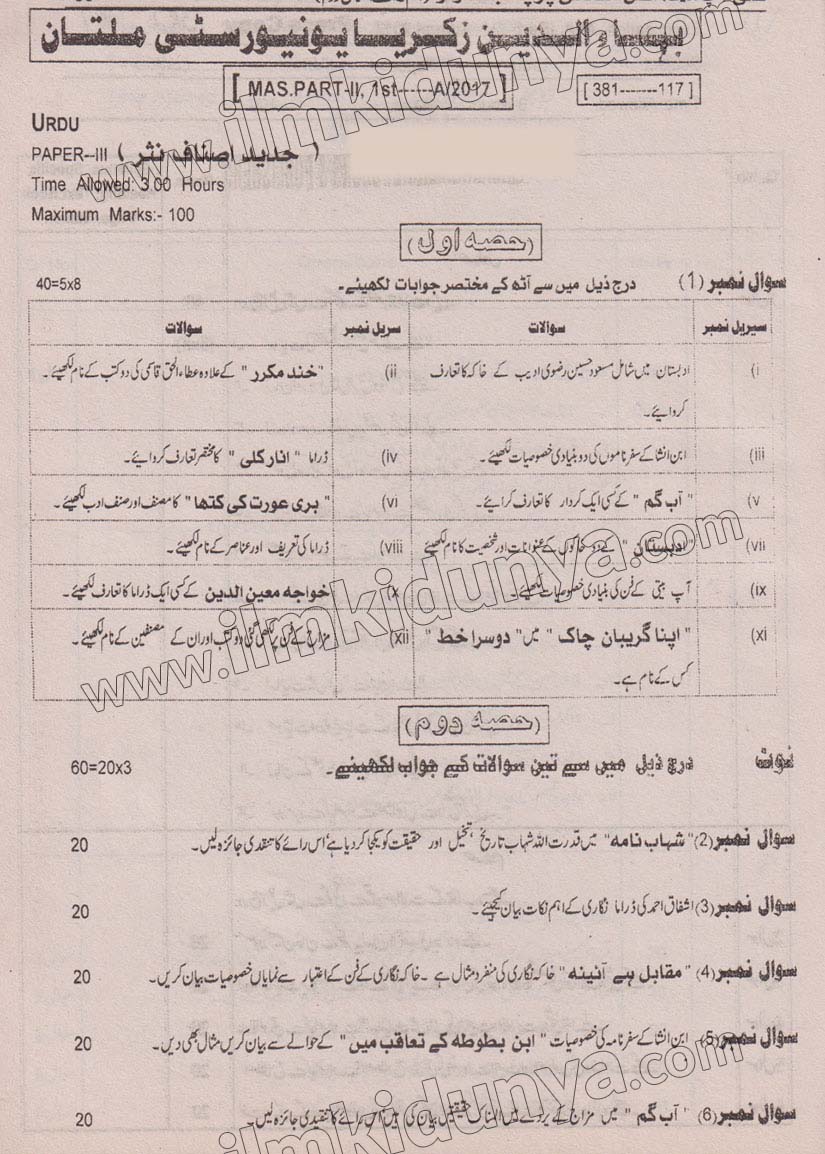 بہاءالدین زکریا یونیورسٹی ملتان
[ MAS.PART-II, 1st------A/2017 ]
[ 381-------117 ]
URDU
PAPER--III ( جدید اصناف نثر )
Time Allowed: 3.00 Hours
Maximum Marks:- 100
(حصہ اول)
سوال نمبر (1) درج ذیل میں سے آٹھ کے مختصر جوابات لکھیئے۔ 40=5x8
سیریل نمبر سوالات سریل نمبر سوالات
(i ادبستان میں شامل مسعود حسین رضوی ادیب کے خاکہ کا تعارف
کروایئے۔
(ii "خند مکرر" کے علاوہ عطاء الحق قاسمی کی دو کتب کے نام لکھیئے۔
(iii ابن انشا کے سفر ناموں کی دو بنیادی خصوصیات لکھیئے۔
(iv ڈراما "انار کلی" کا مختصر تعارف کروایئے۔
(v "آب گم" کے کسی ایک کردار کا تعارف کرایئے۔
(vi "بری عورت کی کتھا" کا مصنف اور صنف ادب لکھیئے۔
(vii "ادبستان" کے دو خاکوں کے عنوانات اور شخصیت کا نام لکھیئے
(viii ڈراما کی تعریف اور عناصر کے نام لکھیئے۔
(ix آپ بیتی کے فن کی بنیادی خصوصیات لکھیئے۔
(x خواجہ معین الدین کے کسی ایک ڈراما کا تعارف لکھیئے۔
(xi "اپنا گریبان چاک" میں "دوسرا خط"
کس کے نام ہے۔
(xii مزاح کے فن پر لکھی گئی دو کتب اور ان کے مصنفین کے نام لکھیئے۔
(حصہ دوم)
نوٹ درج ذیل میں سے تین سوالات کے جواب لکھیئے۔ 60=20x3
سوال نمبر (2) "شہاب نامہ" میں قدرت اللہ شہاب تاریخ، تخیل اور حقیقت کو یکجا کر دیا ہے، اس رائے کا تنقدی جائزہ لیں۔ 20
سوال نمبر (3) اشفاق احمد کی ڈراما نگاری کے اہم نکات بیان کیجیئے۔ 20
سوال نمبر (4) "مقابل ہے آئینہ" خاکہ نگاری کی منفرد مثال ہے۔ خاکہ نگاری کے فن کے اعتبار سے نمایاں خصوصیات بیان کریں۔ 20
سوال نمبر (5) ابن انشا کے سفر نامہ کی خصوصیات "ابن بطوطہ کے تعاقب میں" کے حوالے سے بیان کریں مثال بھی دیں۔ 20
سوال نمبر (6) "آب گم" میں مزاح کے پردے میں المناک حقیقتیں بیان کی ہیں اس رائے کا تنقیدی جائزہ لیں۔ 20
www.ilmkidunya.com
www.ilmkidunya.com
www.ilmkidunya.com